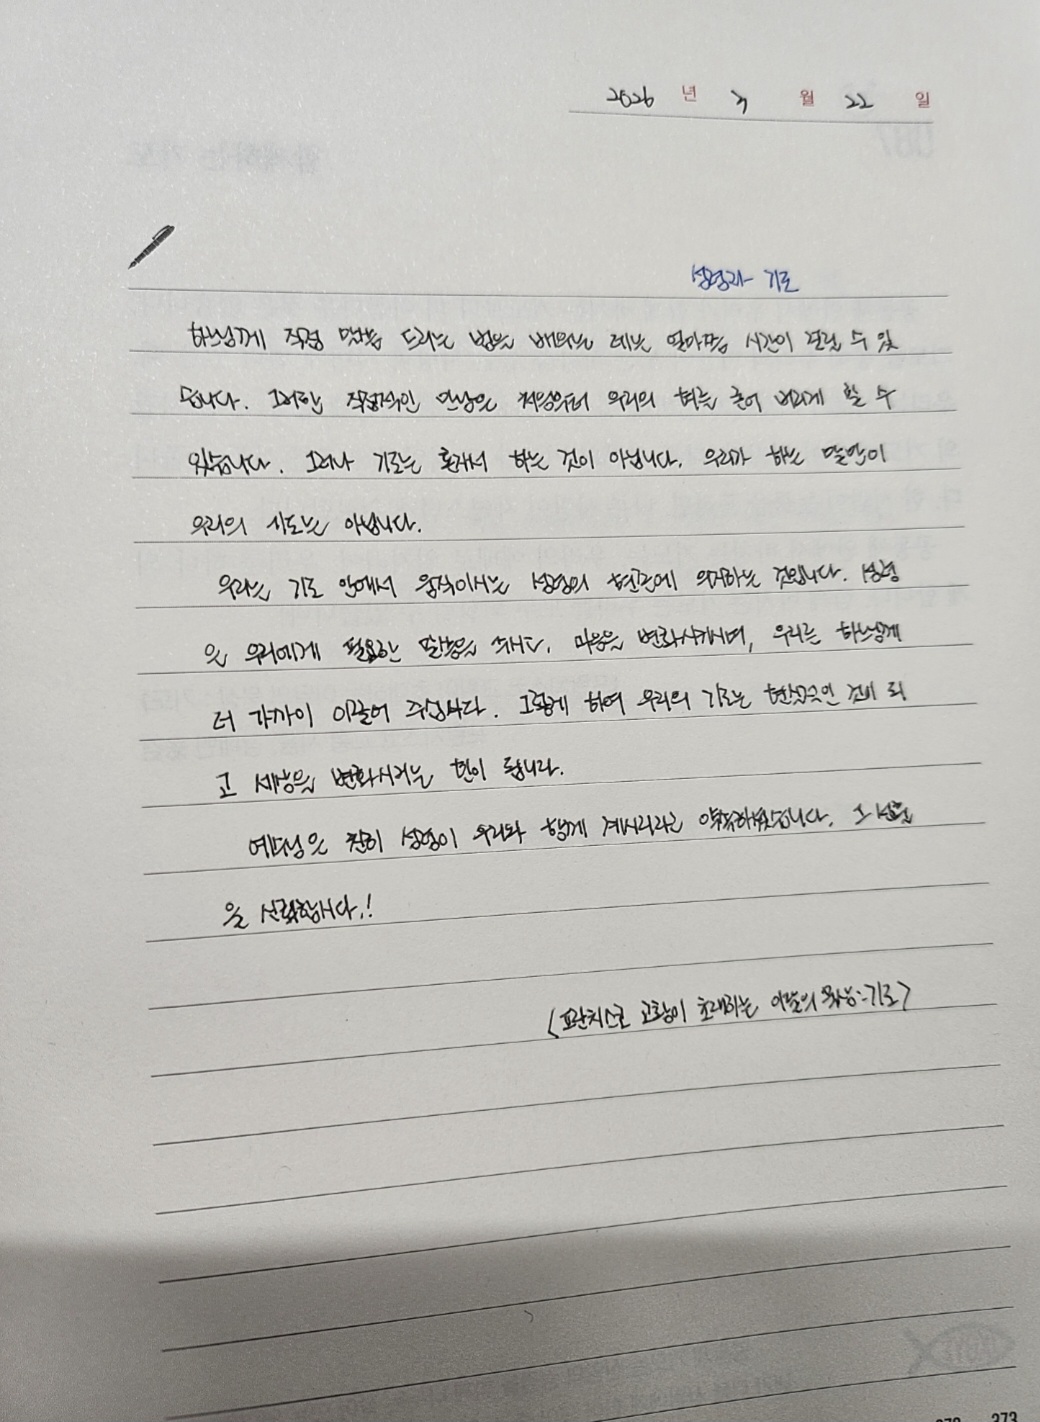 2026 년 3 월 22 일
성령과 기도
하느님께 직접 말씀 드리는 법을 배우는 데는 얼마쯤 시간이 걸릴 수 있
습니다. 그러한 직접적인 만남은 처음부터 우리의 혀를 굳어 버리게 할 수
있습니다. 그러나 기도는 혼자서 하는 것이 아닙니다. 우리가 하는 말만이
우리의 기도는 아닙니다.
우리는 기도 안에서 움직이시는 성령의 현존에 의지하는 것입니다. 성령
은 우리에게 필요한 말씀을 주시고, 마음을 변화시키시며, 우리를 하느님께
더 가까이 이끌어 주십니다. 그렇게 하여 우리의 기도는 현실적인 것이 되
고 세상을 변화시키는 힘이 됩니다.
예수님은 친히 성령이 우리와 함께 계시리라고 약속하셨습니다. 그 성령
을 신뢰합시다.!
(프란치스코 교황이 초대하는 이달의 묵상:기도)
373